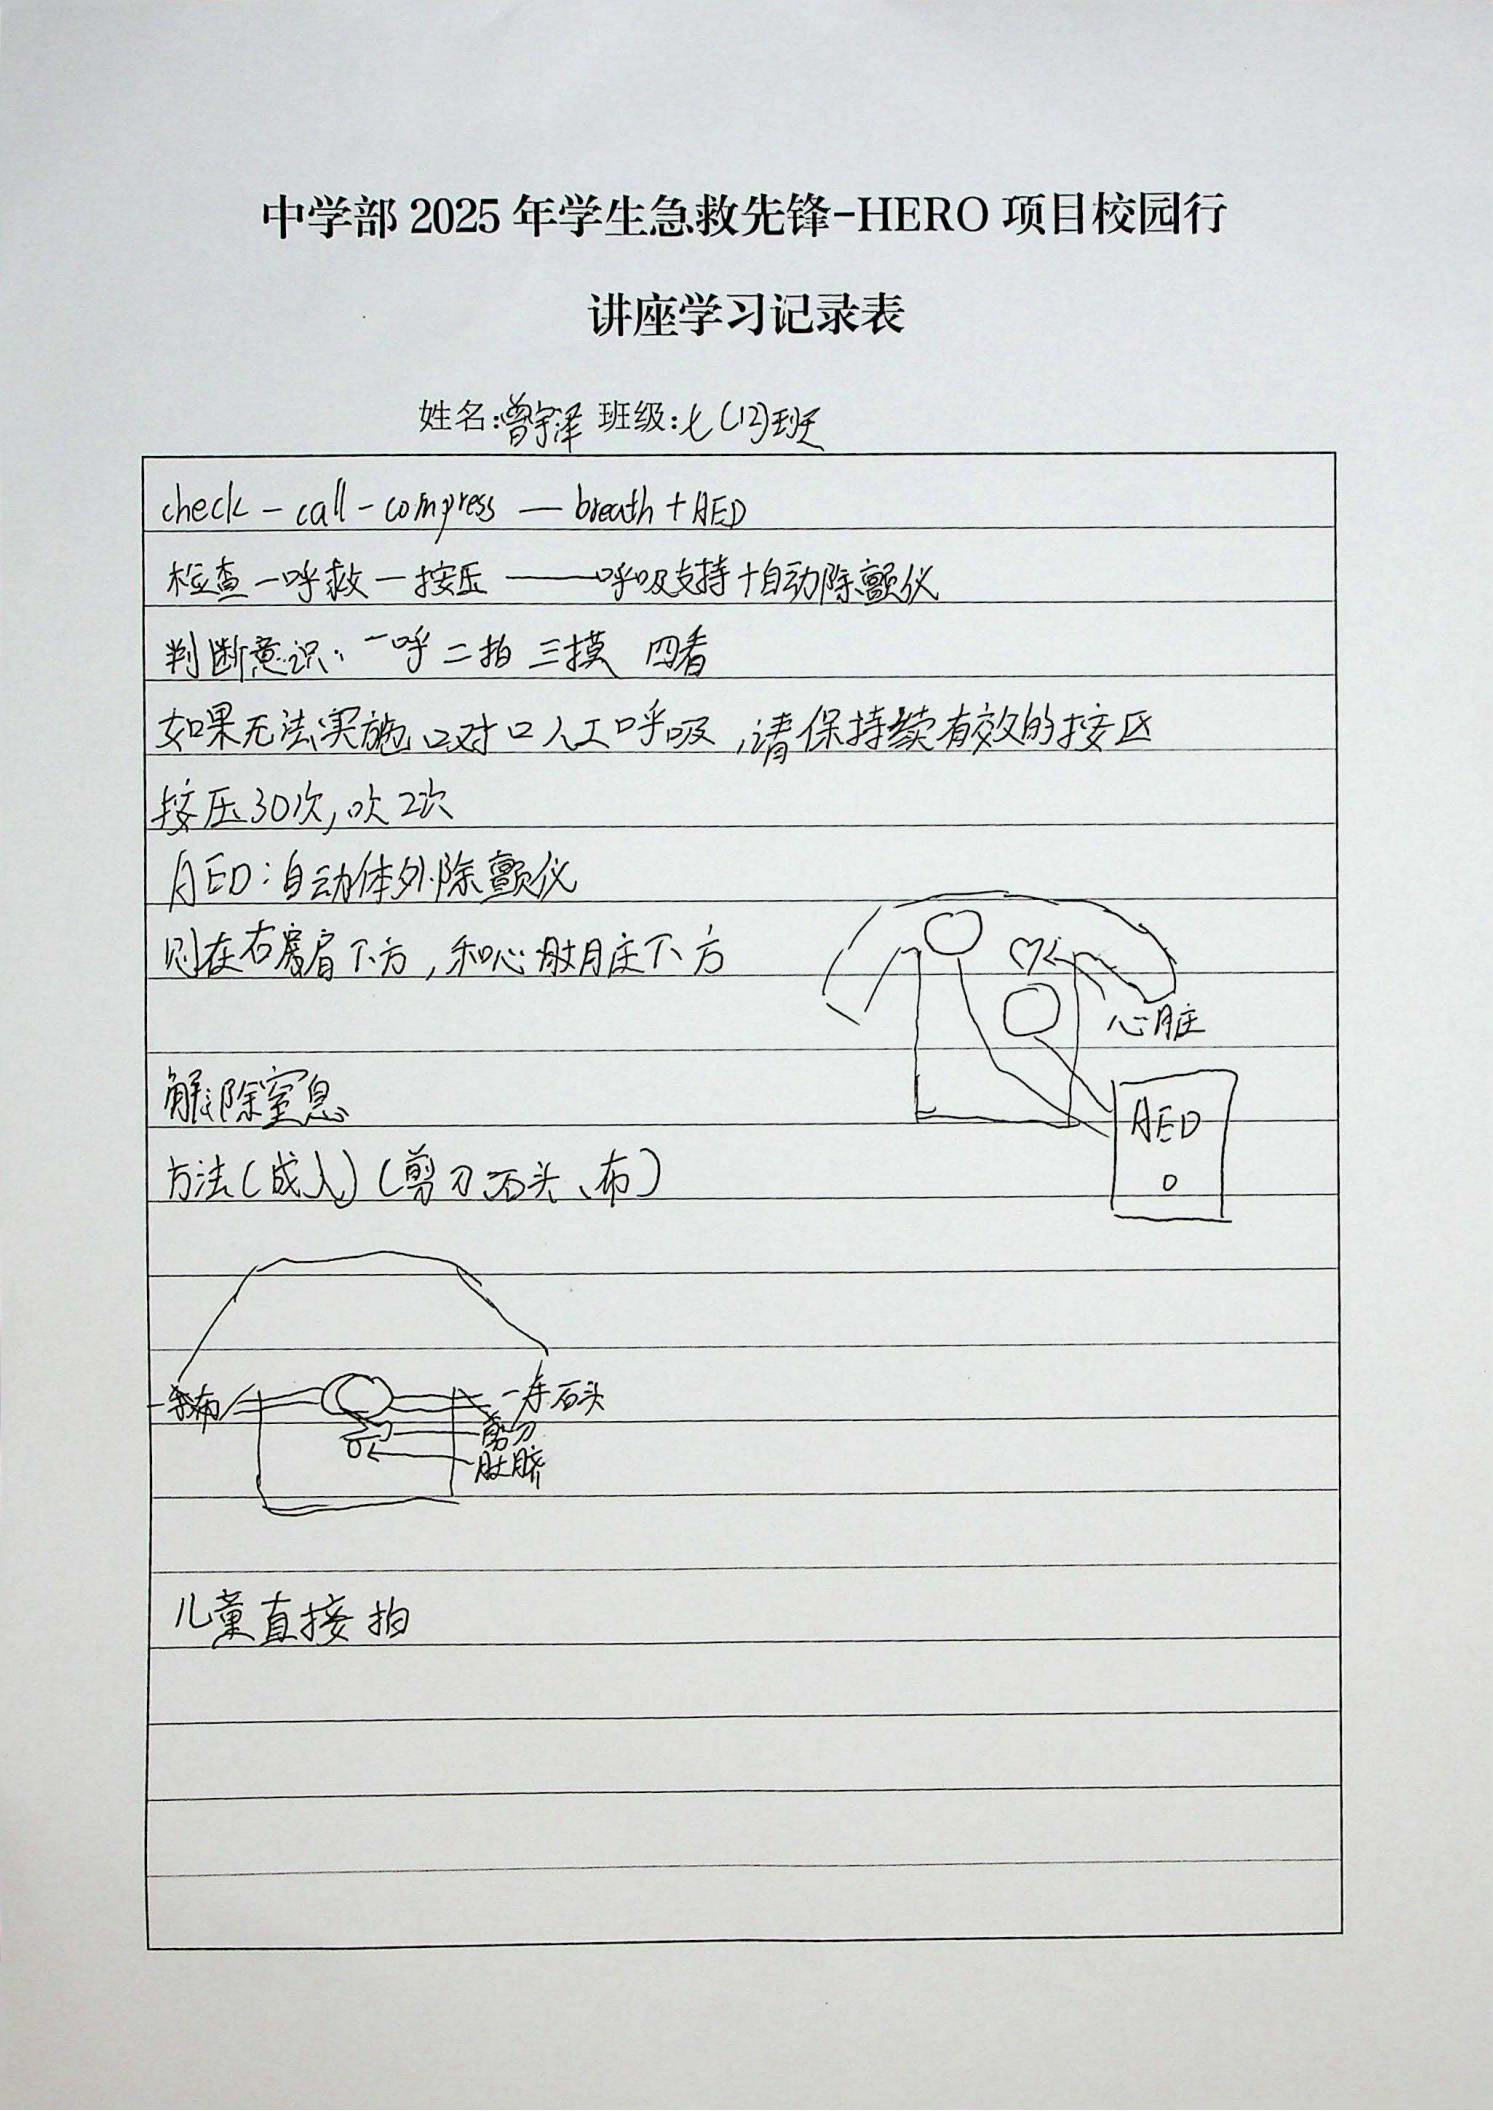 中学部 2025 年学生急救先锋-HERO 项目校园行
讲座学习记录表
姓名:曾宇泽 班级:七(12)班
check - call - compress — breath + AED
检查一呼救一按压 ——呼吸支持+自动除颤仪
判断意识: 一呼 二拍 三摸 四看
如果无法实施口对口人工呼吸,请保持续有效的按压
按压30次,吹2次
AED:自动体外除颤仪
在右肩下方,和心脏下方
心脏
解除窒息
AED
方法(成人)(剪刀、石头、布)
一手布
一手石头
剪刀
肚脐
儿童直接拍